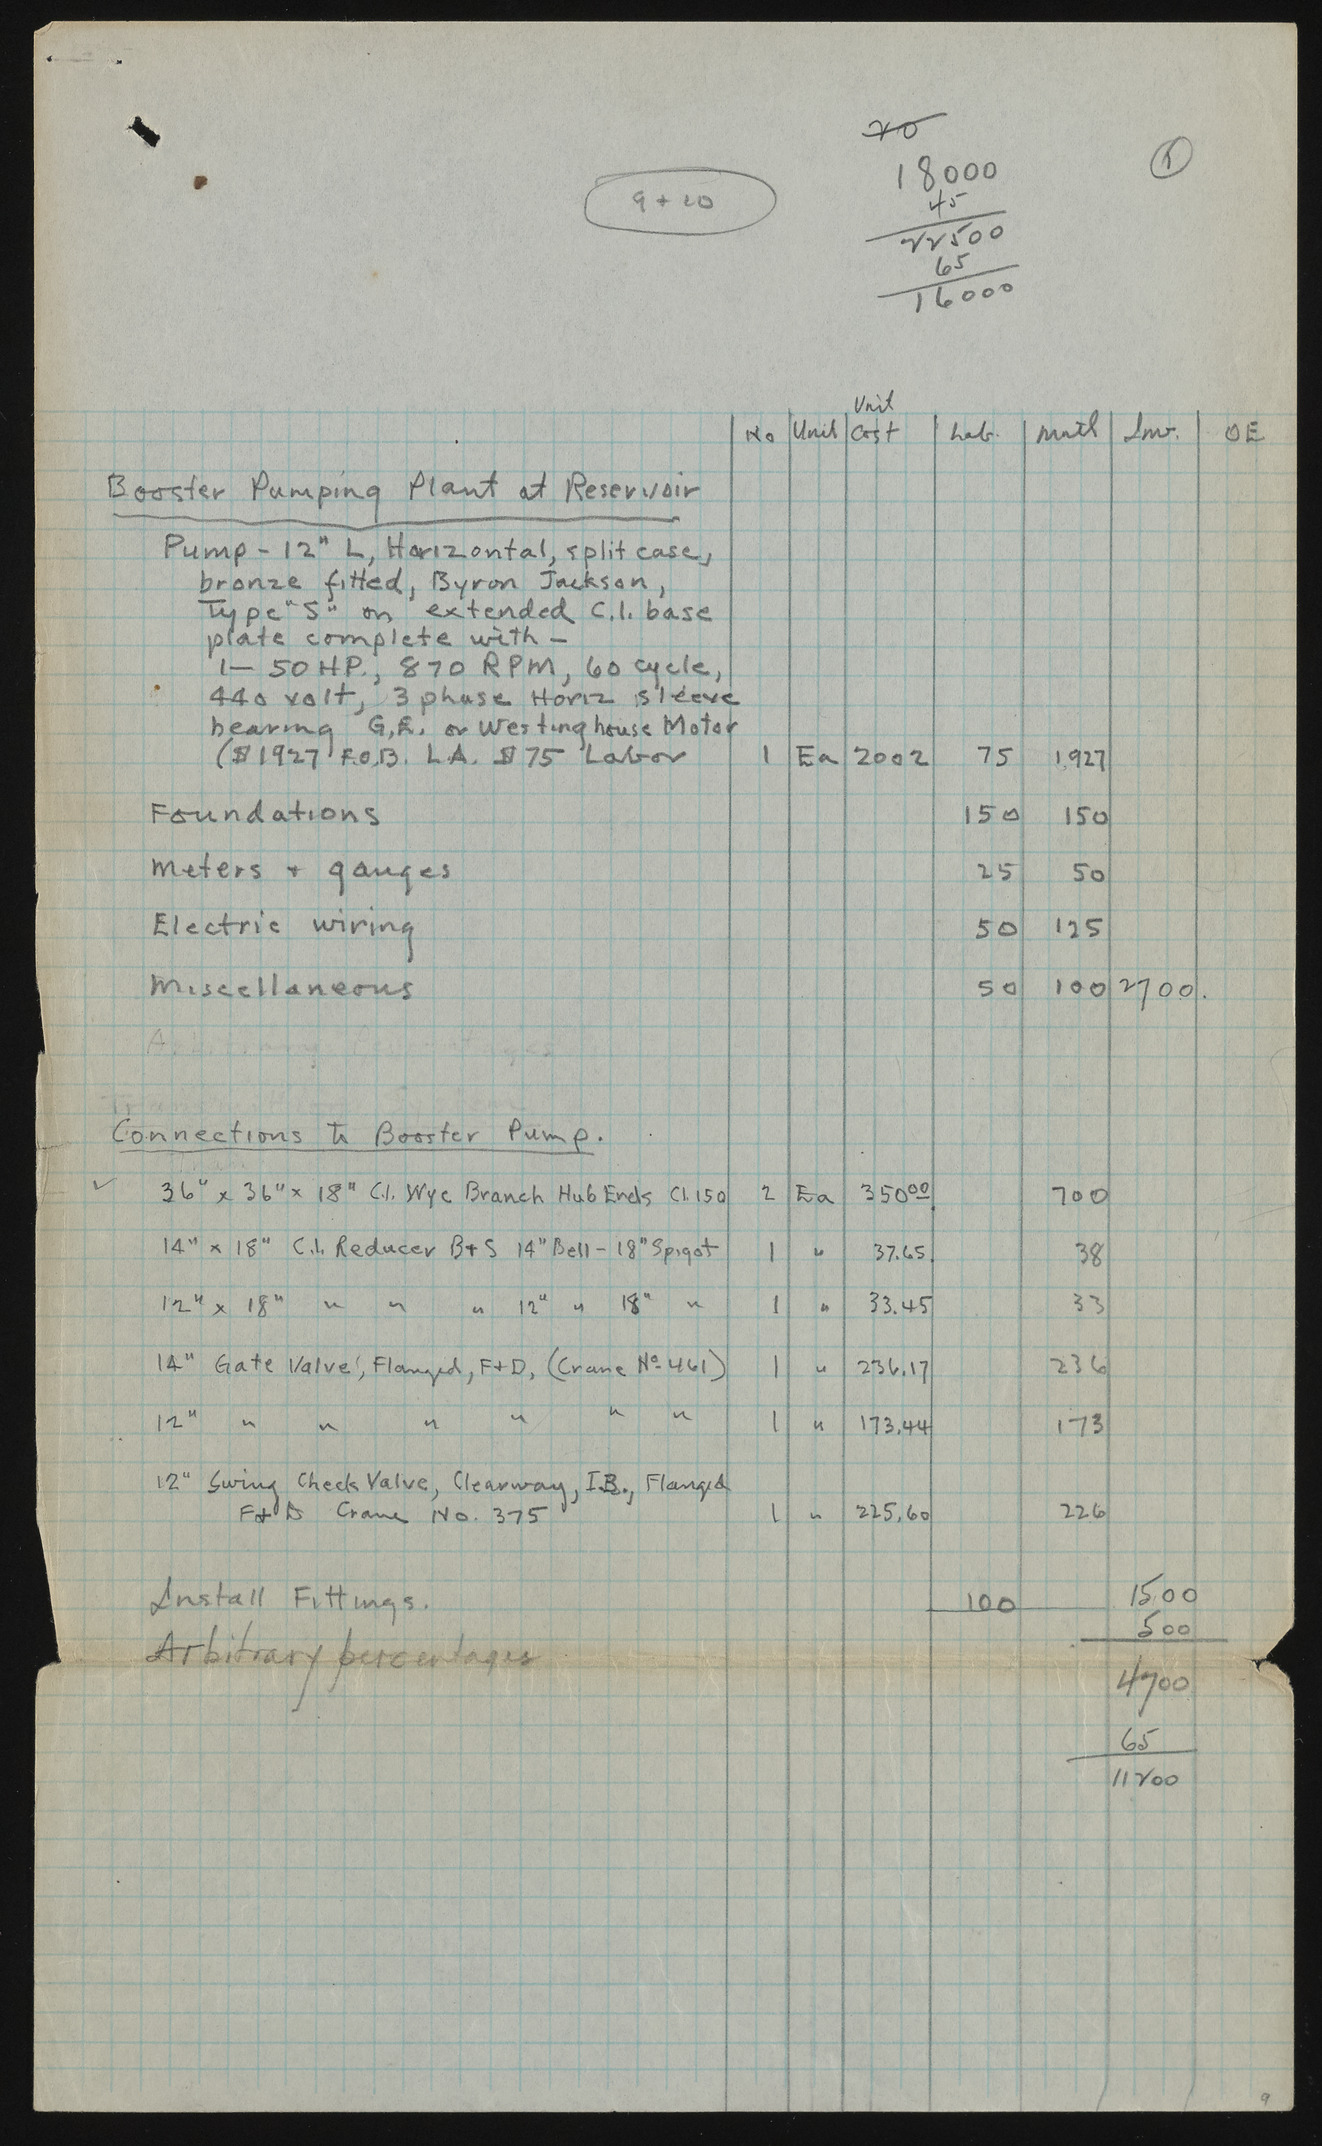 20
18000
45
22500
65
16000
9 + 10
Unit
No Unit Cost Lab. Matl Inv. OE
Booster Pumping Plant at Reservoir
Pump - 12" L, Horizontal, split case,
bronze fitted, Byron Jackson,
Type "S" on extended C.I. base
plate complete with -
1 - 50 HP., 870 RPM, 60 cycle,
440 volt, 3 phase Horiz sleeve
bearing G.E. or Westinghouse Motor
($1927 F.O.B. L.A. $75 Labor 1 Ea 2002 75 1927
Foundations 150 150
Meters + gauges 25 50
Electric wiring 50 125
Miscellaneous 50 100 2700.
Arbitrary Percentages
Transmission System
Connections to Booster Pump.
✓ 36" x 36" x 18" C.I. Wye Branch Hub Ends Cl. 150 2 Ea 350.00 700
14" x 18" C.I. Reducer B+S 14" Bell - 18" Spigot 1 " 37.65 38
12" x 18" " " " 12" " 18" " 1 " 33.45 33
14" Gate Valve, Flanged, F+D, (Crane No 461) 1 " 236.17 236
12" " " " " " " 1 " 173.44 173
12" Swing Check Valve, Clearway, I.B., Flanged
F+D Crane No. 375 1 " 225.60 226
Install Fittings. 100 1500
500
Arbitrary percentages
4700
65
11200
9